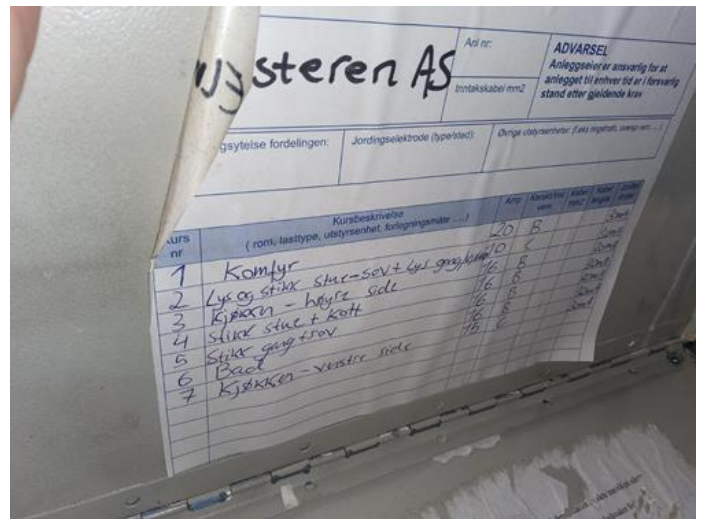 steren AS
Anl nr:
Inntakskabel mm2
ADVARSEL
Anleggseier er ansvarlig for at
anlegget til enhver tid er i forsvarlig
stand etter gjeldende krav
gsytelse fordelingen:
Jordingselektrode (type/sted):
Øvrige utstyrsenheter:
urs
nr
Kursbeskrivelse
( rom, lasttype, utstyrsenhet, forlegningsmåte ....)
Amp
Kabel
mm2
Kabel
lengde
1 Komfyr 20 B
2 Lys og stikk stue-sov + Lys gang 10 C
3 Kjøkken - høyre side 16 B
4 Stikk stue + Kott 16 B
5 Stikk gang + sov 16 B
6 Bad 16 B
7 Kjøkken - venstre side 15 C